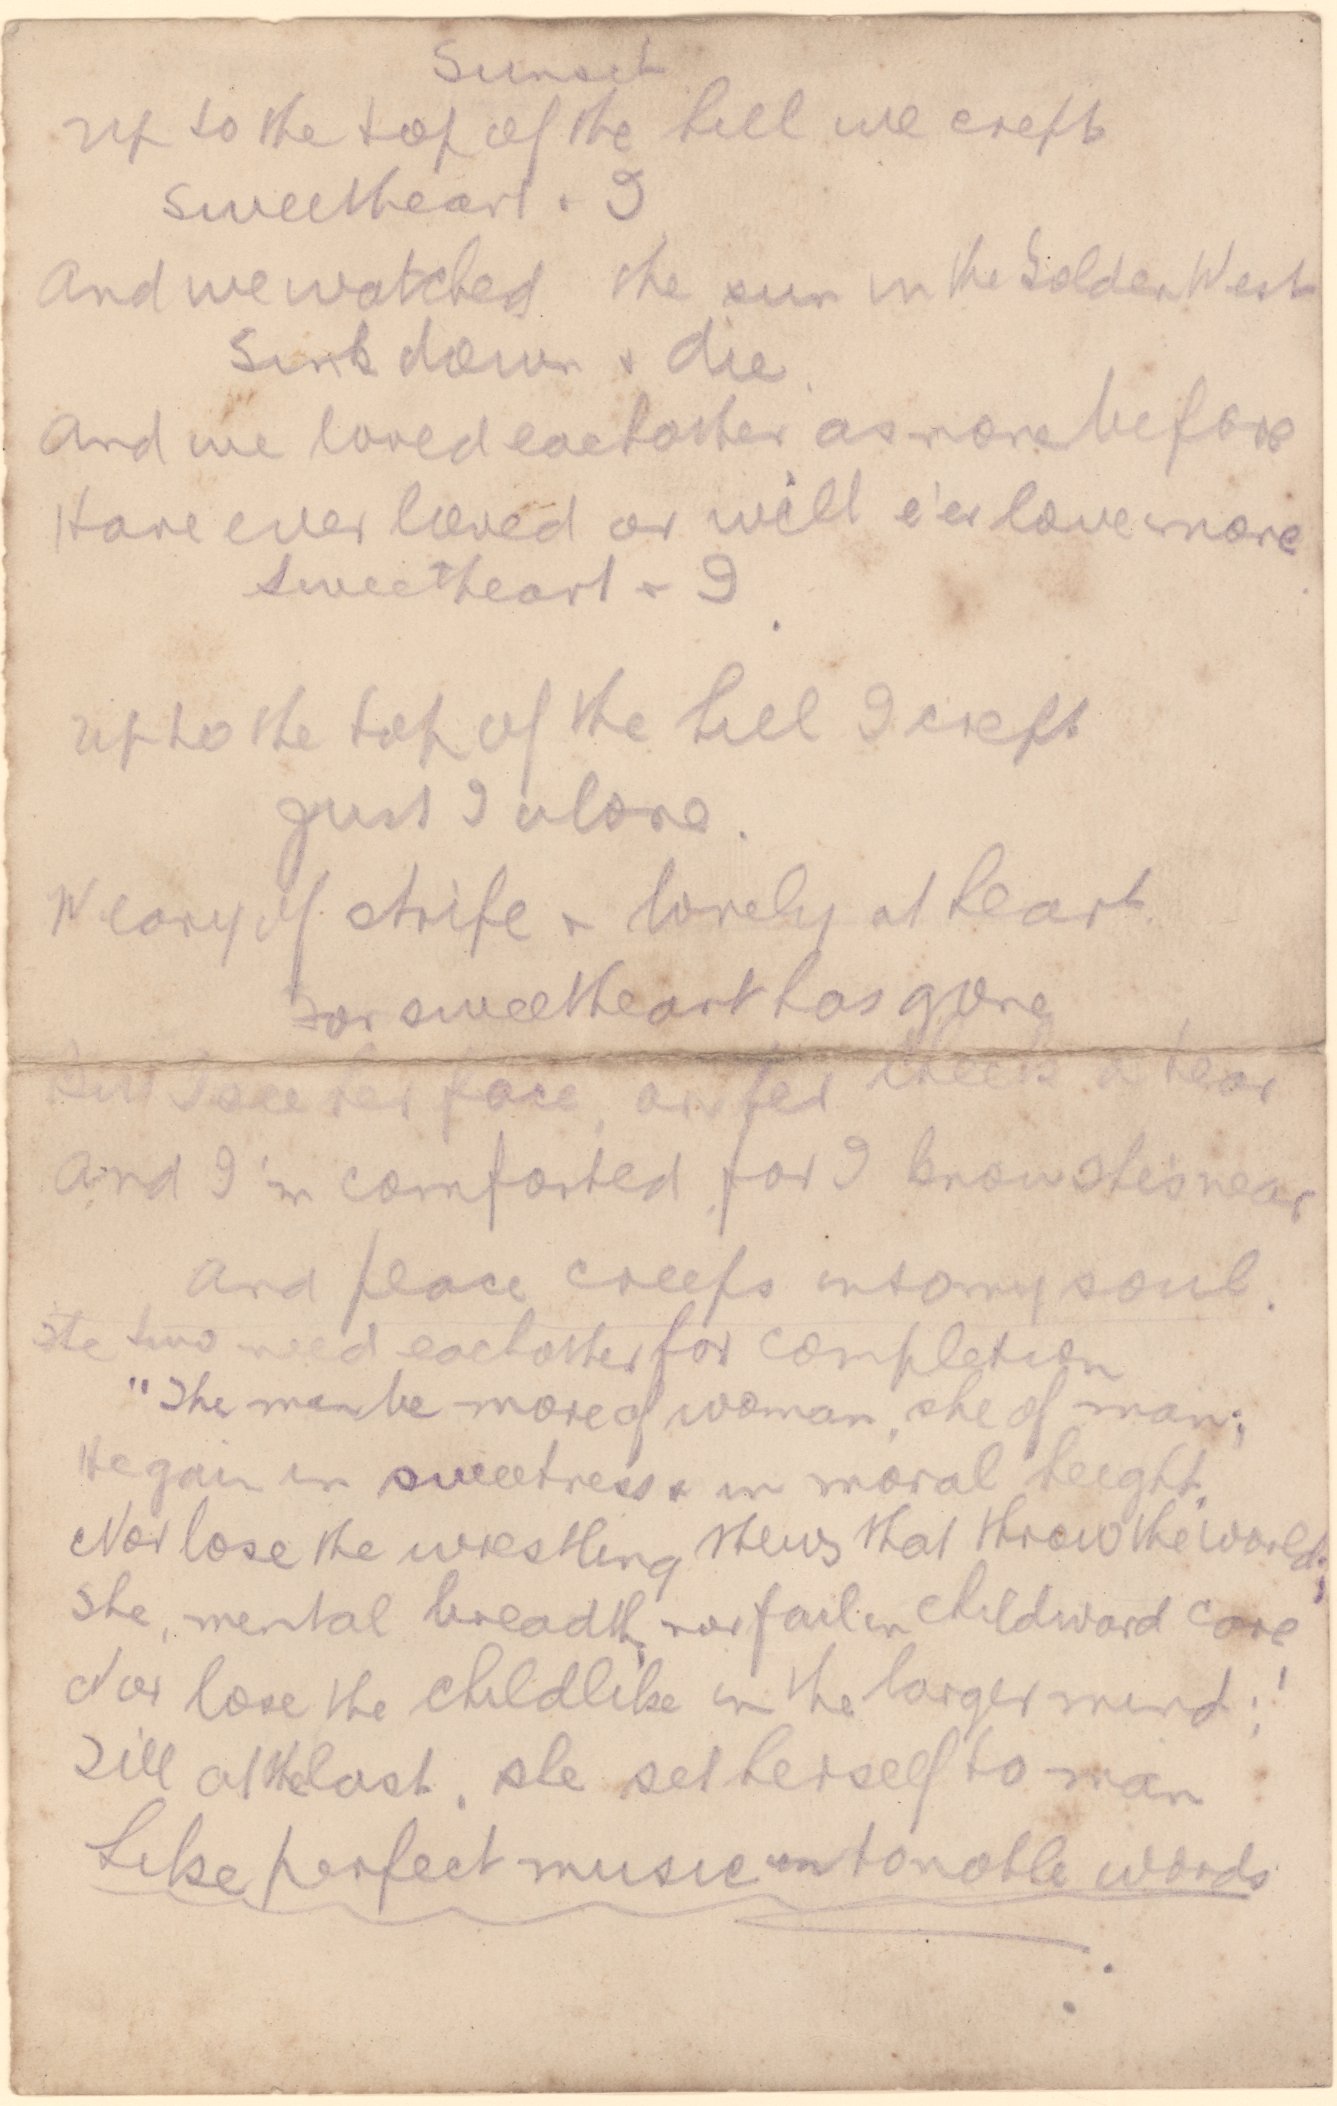 Sunset
Up to the top of the hill we crept
Sweetheart & I
And we watched the sun in the Golden West
Sink down & die.
And we loved each other as none before
Have ever loved or will e'er love more
Sweetheart & I.
Up to the top of the hill I crept
Just I alone.
Weary of strife & lonely at heart.
For sweetheart has gone
But I see her face, on her cheek a tear
And I'm comforted, for I know she's near
And peace creeps into my soul.
The two need each other for completion
"The man be more of woman, she of man;
He gain in sweetness & in moral height,
Nor lose the wrestling thews that throw the world;
She, mental breadth, nor fail in childward care
Nor lose the childlike in the larger mind;!
Till at the last, she set herself to man
Like perfect music unto noble words